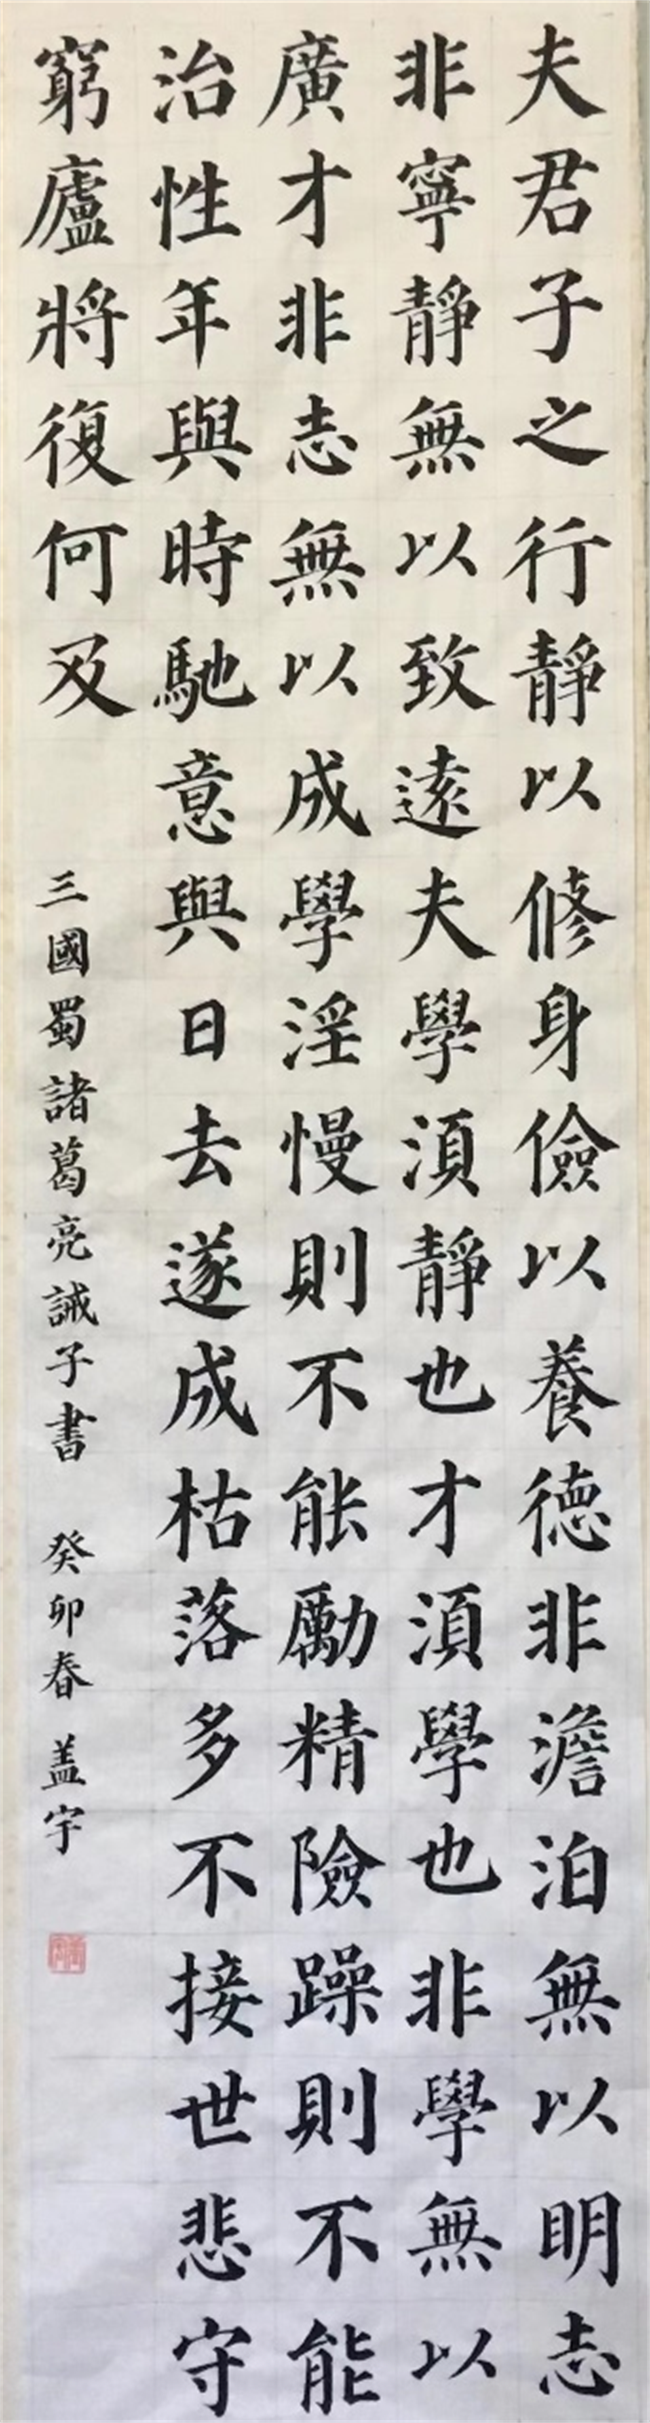 夫君子之行靜以修身儉以養德非澹泊無以明志
非寧靜無以致遠夫學湏靜也才湏學也非學無以
廣才非志無以成學淫慢則不能勵精險躁則不能
治性年與時馳意與日去遂成枯落多不接世悲守
窮廬將復何及
三國蜀諸葛亮誡子書 癸卯春 盖宇